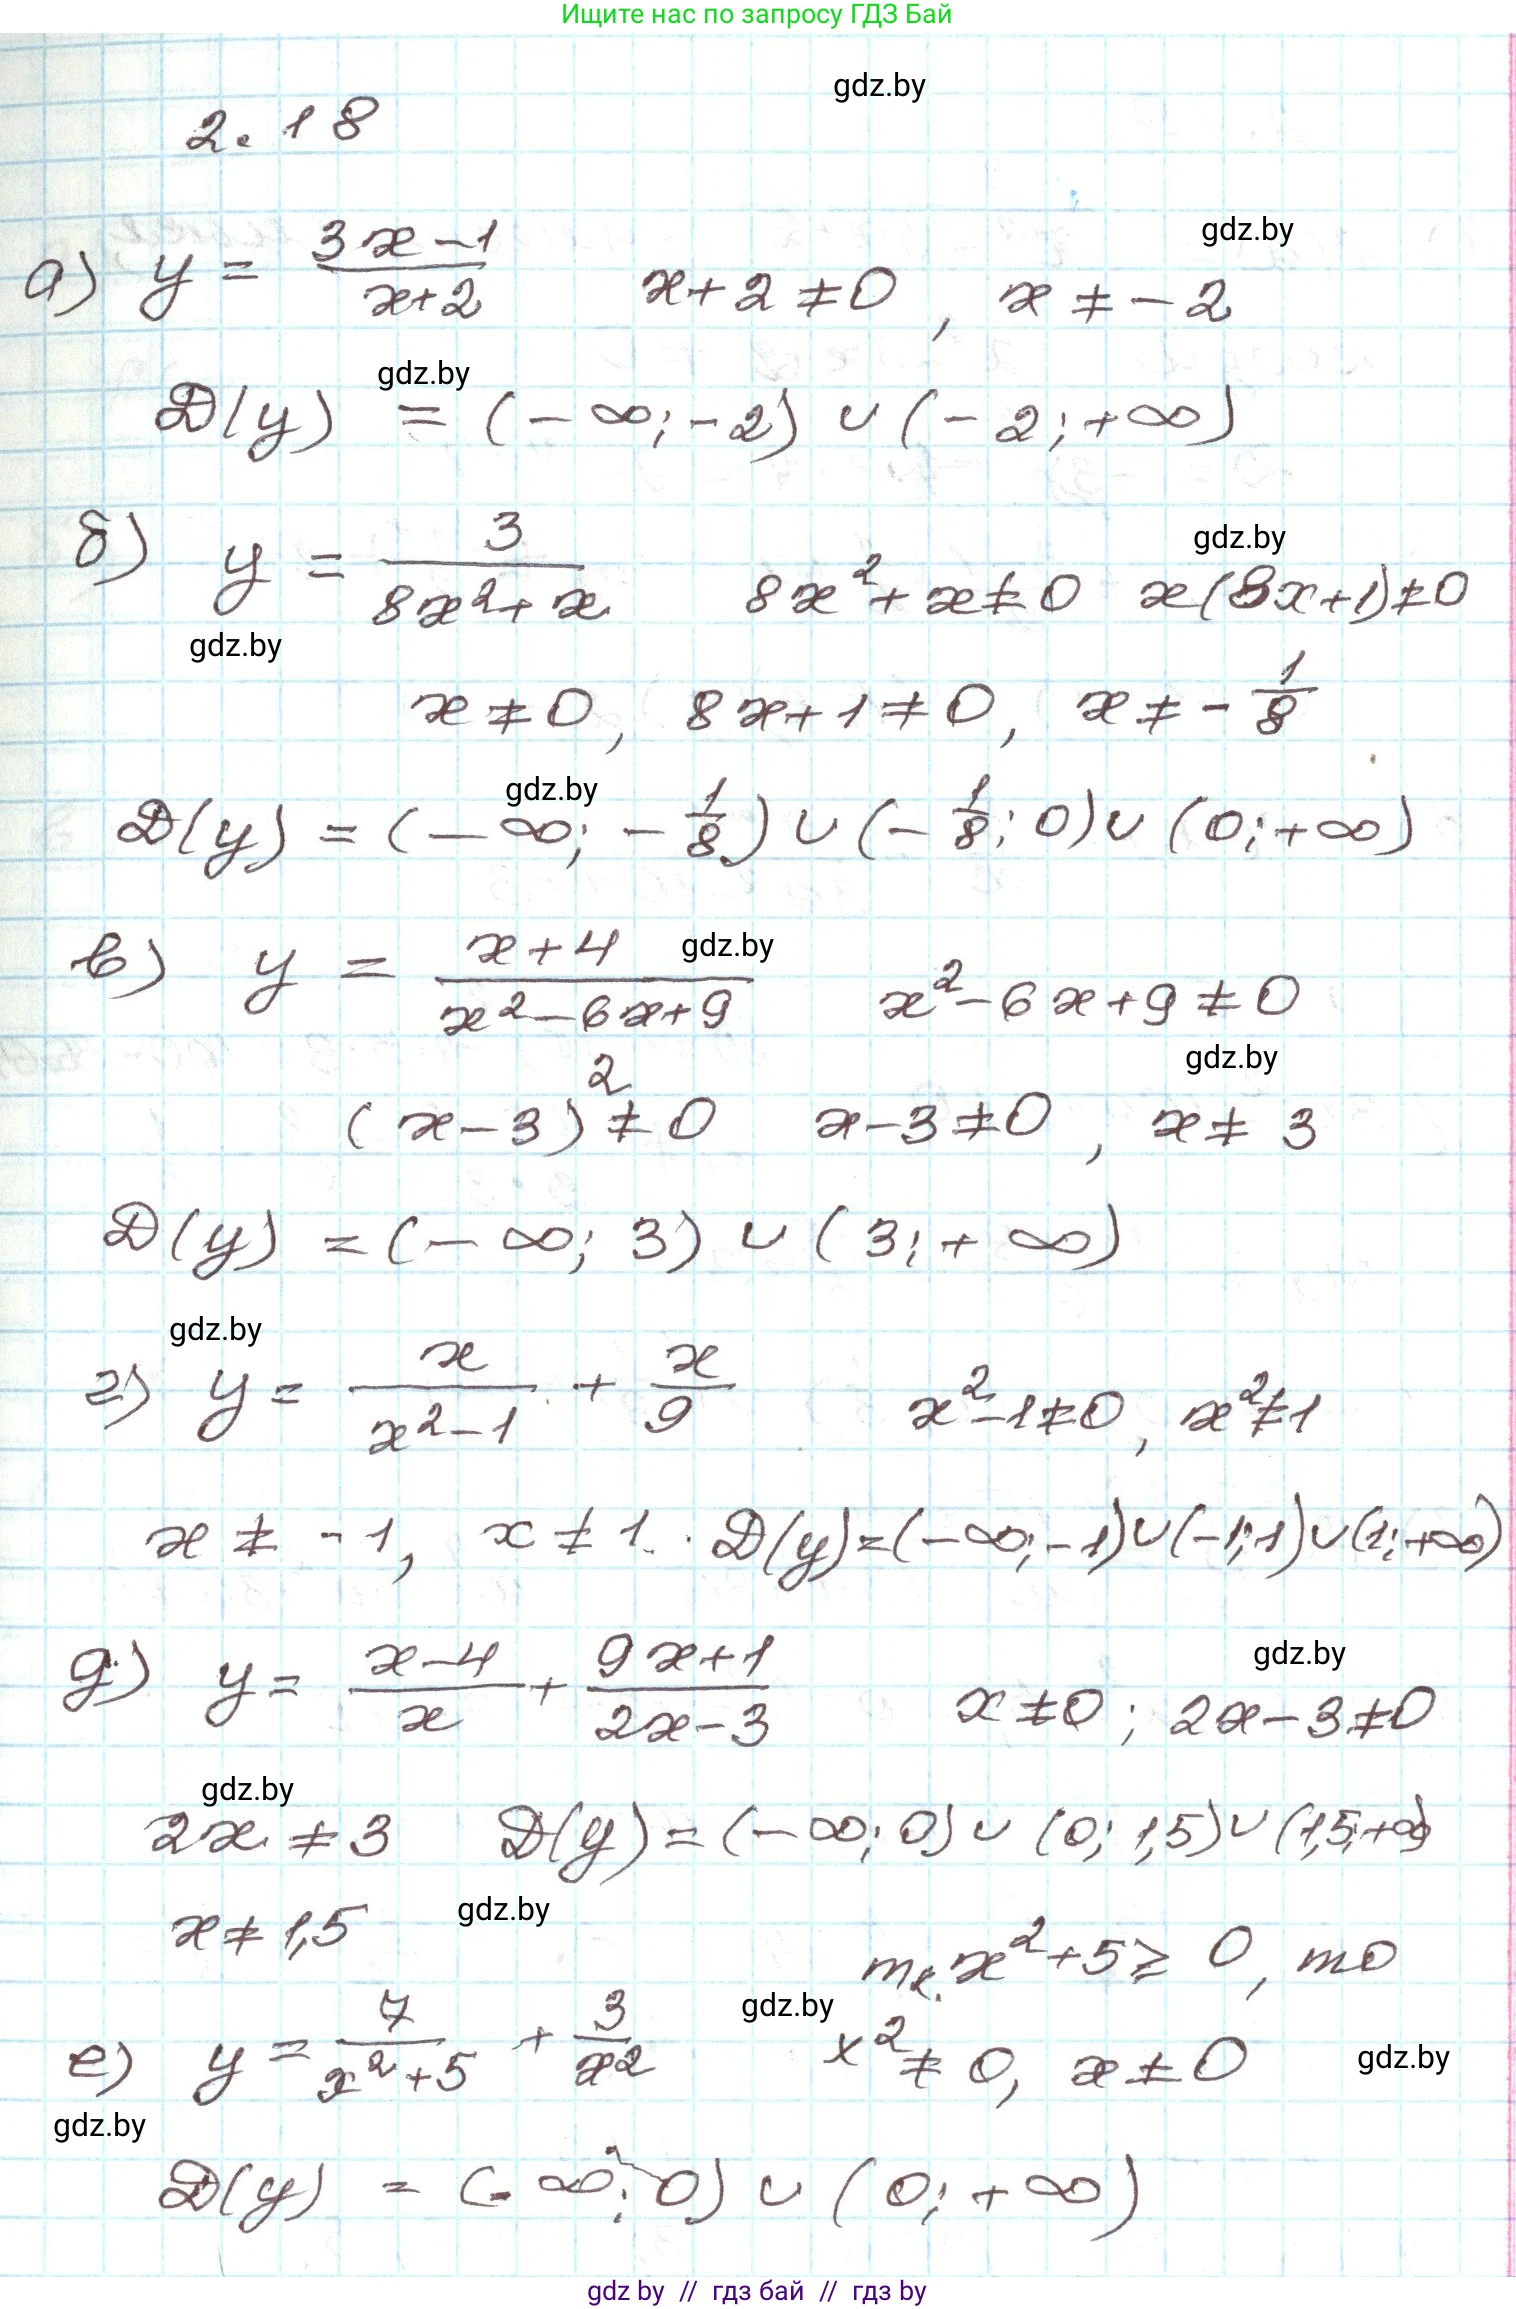 Ищите нас по запросу ГДЗ Бай
gdz.by
2.18
а) y = (3x-1)/(x+2)   x+2 ≠ 0, x ≠ -2
gdz.by
gdz.by
D(y) = (-∞; -2) ∪ (-2; +∞)
б) y = 3/(8x²+x)   8x²+x ≠ 0   x(8x+1) ≠ 0
gdz.by
gdz.by
x ≠ 0, 8x+1 ≠ 0, x ≠ -1/8
gdz.by
D(y) = (-∞; -1/8) ∪ (-1/8; 0) ∪ (0; +∞)
в) y = (x+4)/(x²-6x+9)   x²-6x+9 ≠ 0
gdz.by
gdz.by
(x-3)² ≠ 0   x-3 ≠ 0, x ≠ 3
D(y) = (-∞; 3) ∪ (3; +∞)
gdz.by
г) y = x/(x²-1) + x/9   x²-1 ≠ 0, x² ≠ 1
x ≠ -1, x ≠ 1. D(y) = (-∞; -1) ∪ (-1; 1) ∪ (1; +∞)
д) y = (x-4)/x + (9x+1)/(2x-3)   x ≠ 0; 2x-3 ≠ 0
gdz.by
gdz.by
2x ≠ 3   D(y) = (-∞; 0) ∪ (0; 1,5) ∪ (1,5; +∞)
x ≠ 1,5
gdz.by
т.к. x²+5 ⩾ 0, то
е) y = 7/(x²+5) + 3/x²   x² ≠ 0, x ≠ 0
gdz.by
gdz.by
gdz.by
D(y) = (-∞; 0) ∪ (0; +∞)
gdz by // гдз бай // гдз by